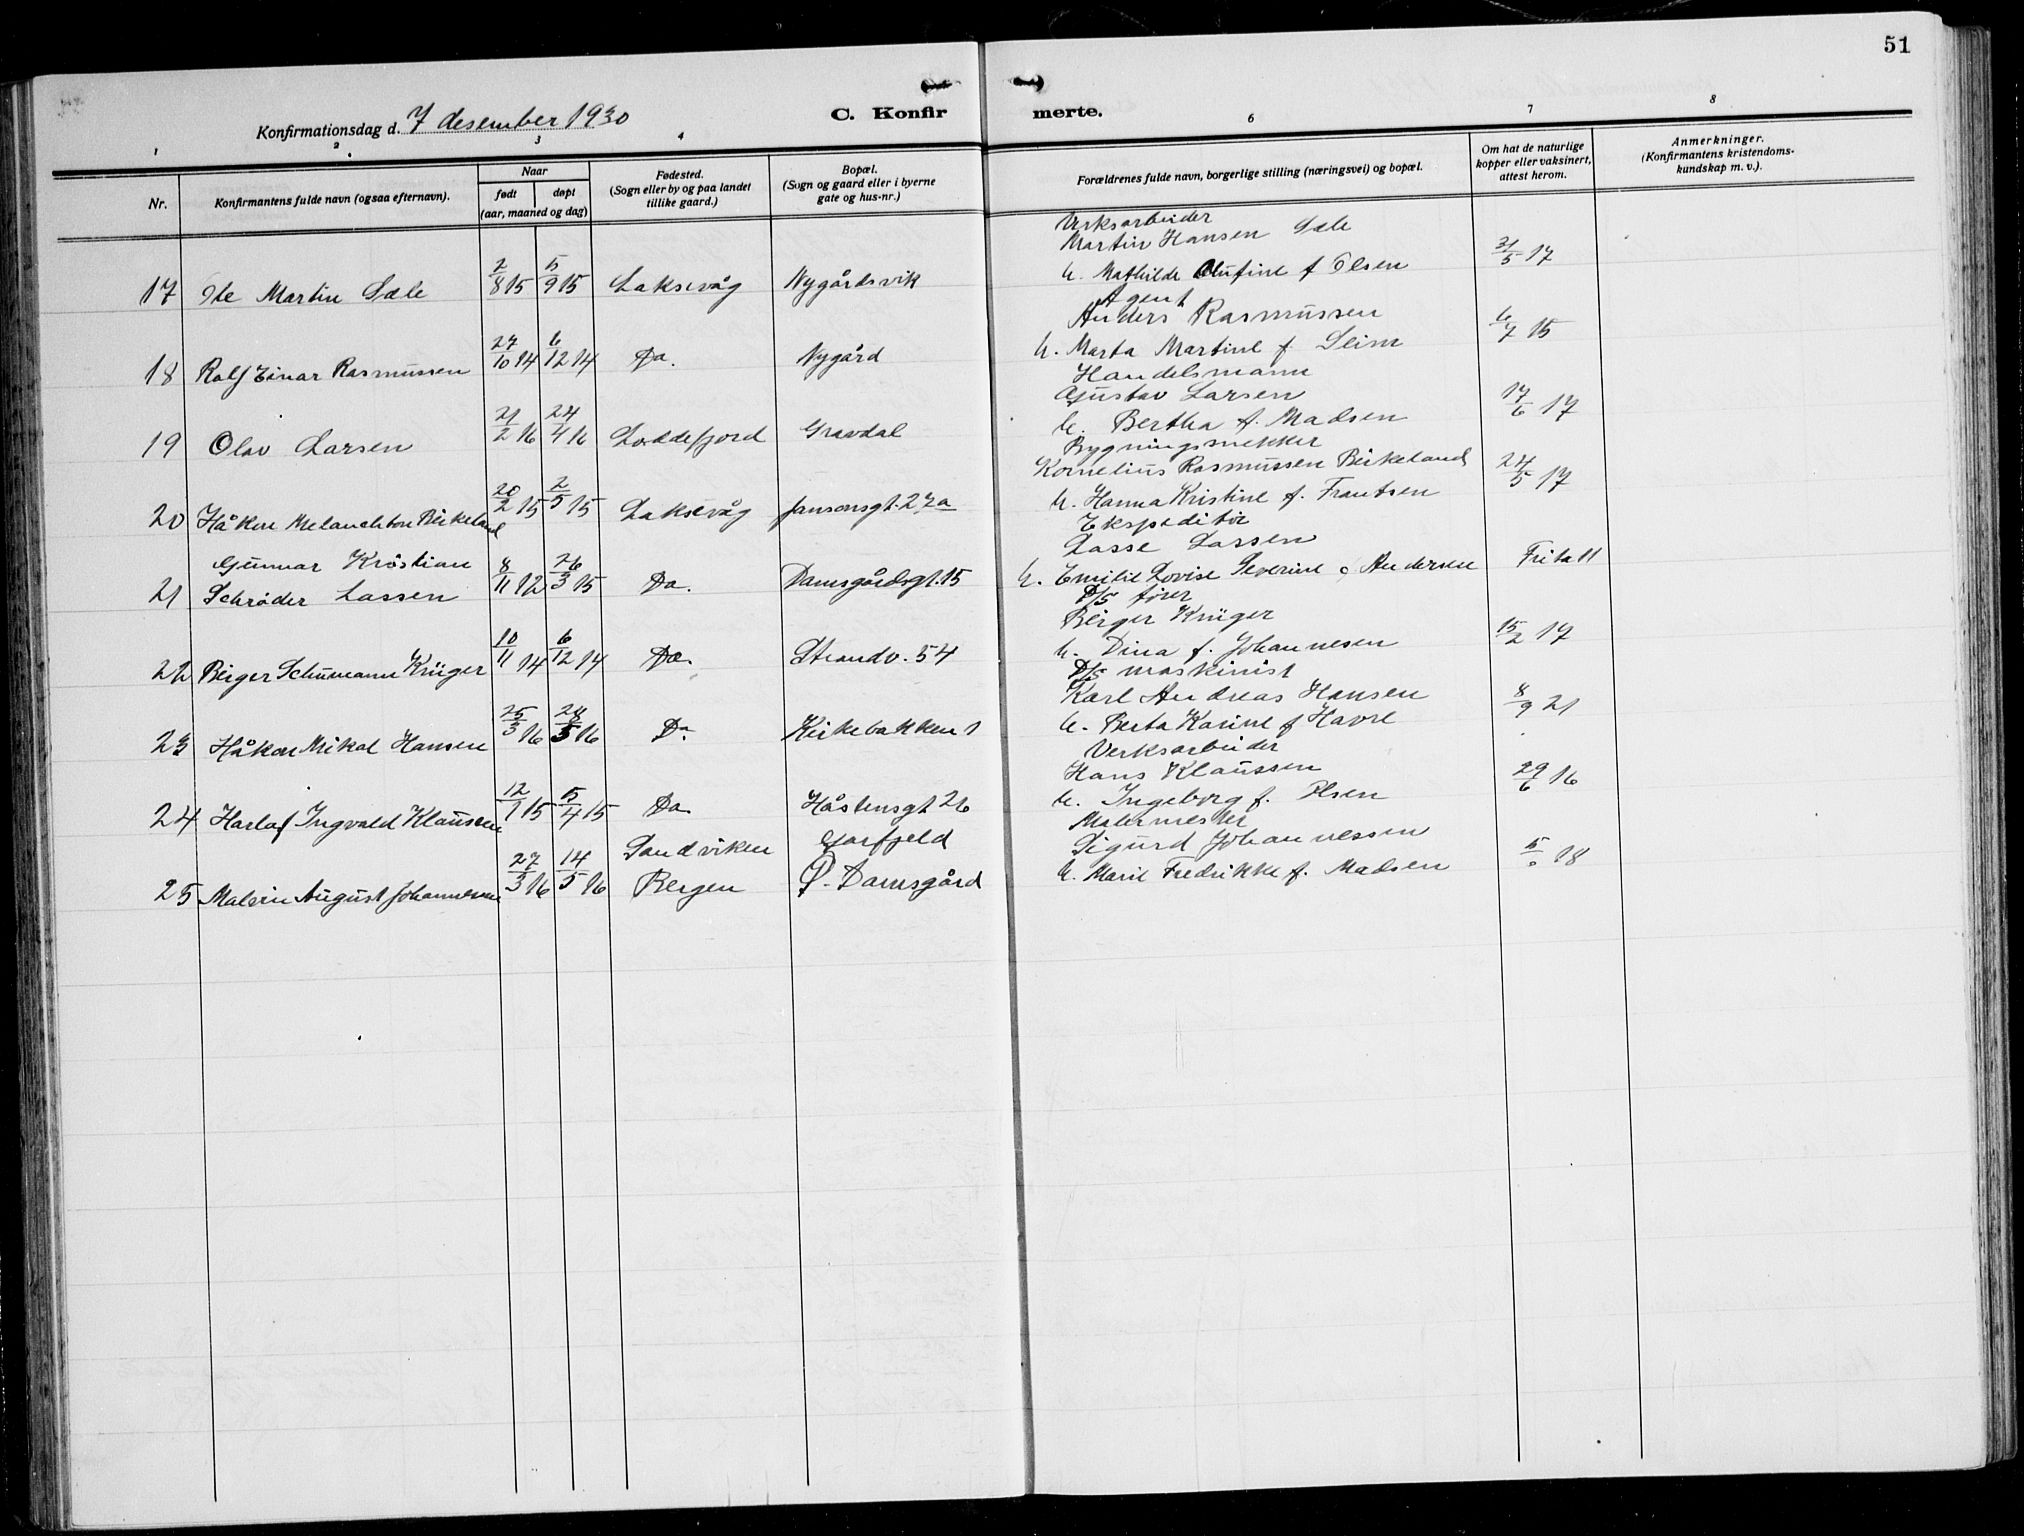 51
Konfirmationsdag d. 7 desember 1930
C. Konfirmerte.
1 2 3 4 6 7 8
Nr.
Konfirmantens fulde navn (ogsaa efternavn).
Naar
født døpt
(aar, maaned og dag)
Fødested.
(Sogn eller by og paa landet
tillike gaard.)
Bopæl.
(Sogn og gaard eller i byerne
gate og hus-nr.)
Forældrenes fulde navn, borgerlige stilling (næringsvei) og bopæl.
Om hat de naturlige
kopper eller vaksinert,
attest herom.
Anmerkninger.
(Konfirmantens kristendoms-
kundskap m. v.).
Verksarbeider
Martin Hansen Sæle
17 Ole Martin Sæle 2/8 15 5/9 15 Laksevåg Nygårdsvik h. Mathilde Olufine f Olsen 31/5 17
Agent
Anders Rasmussen
18 Rolf Einar Rasmussen 27/10 14 6/12 14 Do. Nygård h. Marta Martine f. Seim 6/7 15
Handelsmann
Gustav Larsen
19 Olav Larsen 21/2 16 24/4 16 Loddefjord Gravdal h. Bertha f. Madsen 17/6 17
Bygningssnekker
Kornelius Rasmussen Birkeland
20 Håkon Melanchton Birkeland 20/2 15 2/5 15 Laksevåg Jansonsgt. 27a h. Hanna Kristine f. Frantsen 24/5 17
Ekspeditør
Lasse Lassen
Gunnar Kristian
21 Schrøder Lassen 8/11 12 26/3 15 Do. Damsgårdsgt. 15 h. Emilie Lovise Severine f Andersen Fritatt
D/S fører
Birger Krüger
22 Birger Schumann Krüger 10/11 14 6/12 14 Do. Strandv. 54 h. Dina f. Johannesen 15/2 17
D/S maskinist
Karl Andreas Hansen
23 Håkon Mikal Hansen 25/3 16 28/5 16 Do Kirkebakken 1 h. Berta Karine f Havre 8/9 21
Verksarbeider
Hans Klaussen
24 Harlaf Ingvald Klaussen 12/1 15 5/4 15 Do Håstensgt 26 h. Ingeborg f. Olsen 29/6 16
Malermester
Sigurd Johannessen
Sandviken Garfjeld
25 Malvin August Johannesen 27/3 16 14/5 16 Bergen Ø. Damsgård h. Marie Fredrikke f. Madsen 18